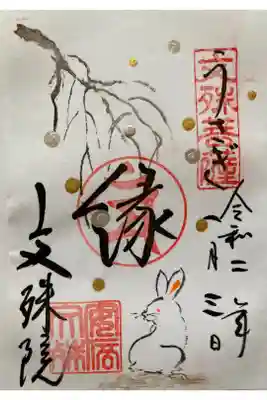 文殊菩薩
うさぎ
令和二年
月三日
縁
文殊院